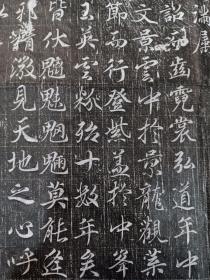 霓裳弘道年中
文景雲中於景龍觀業
節而行登紫蓋於中峯
玉英雲粉殆十數年矣
皆伏魑魅魍魎莫能逢
邪精激見天地之心呼